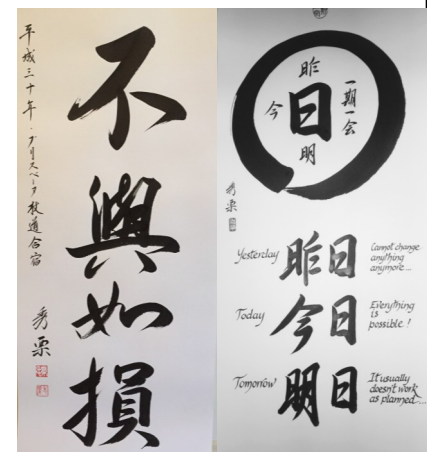 不與如損
平成三十年・ブリスベーン杖道合宿
秀栗
一期一会
昨
今
日
明
秀栗
Yesterday
昨日
Cannot change
anything
anymore...
Today
今日
Everything
is
possible!
Tomorrow
明日
It usually
doesn't work
as planned...